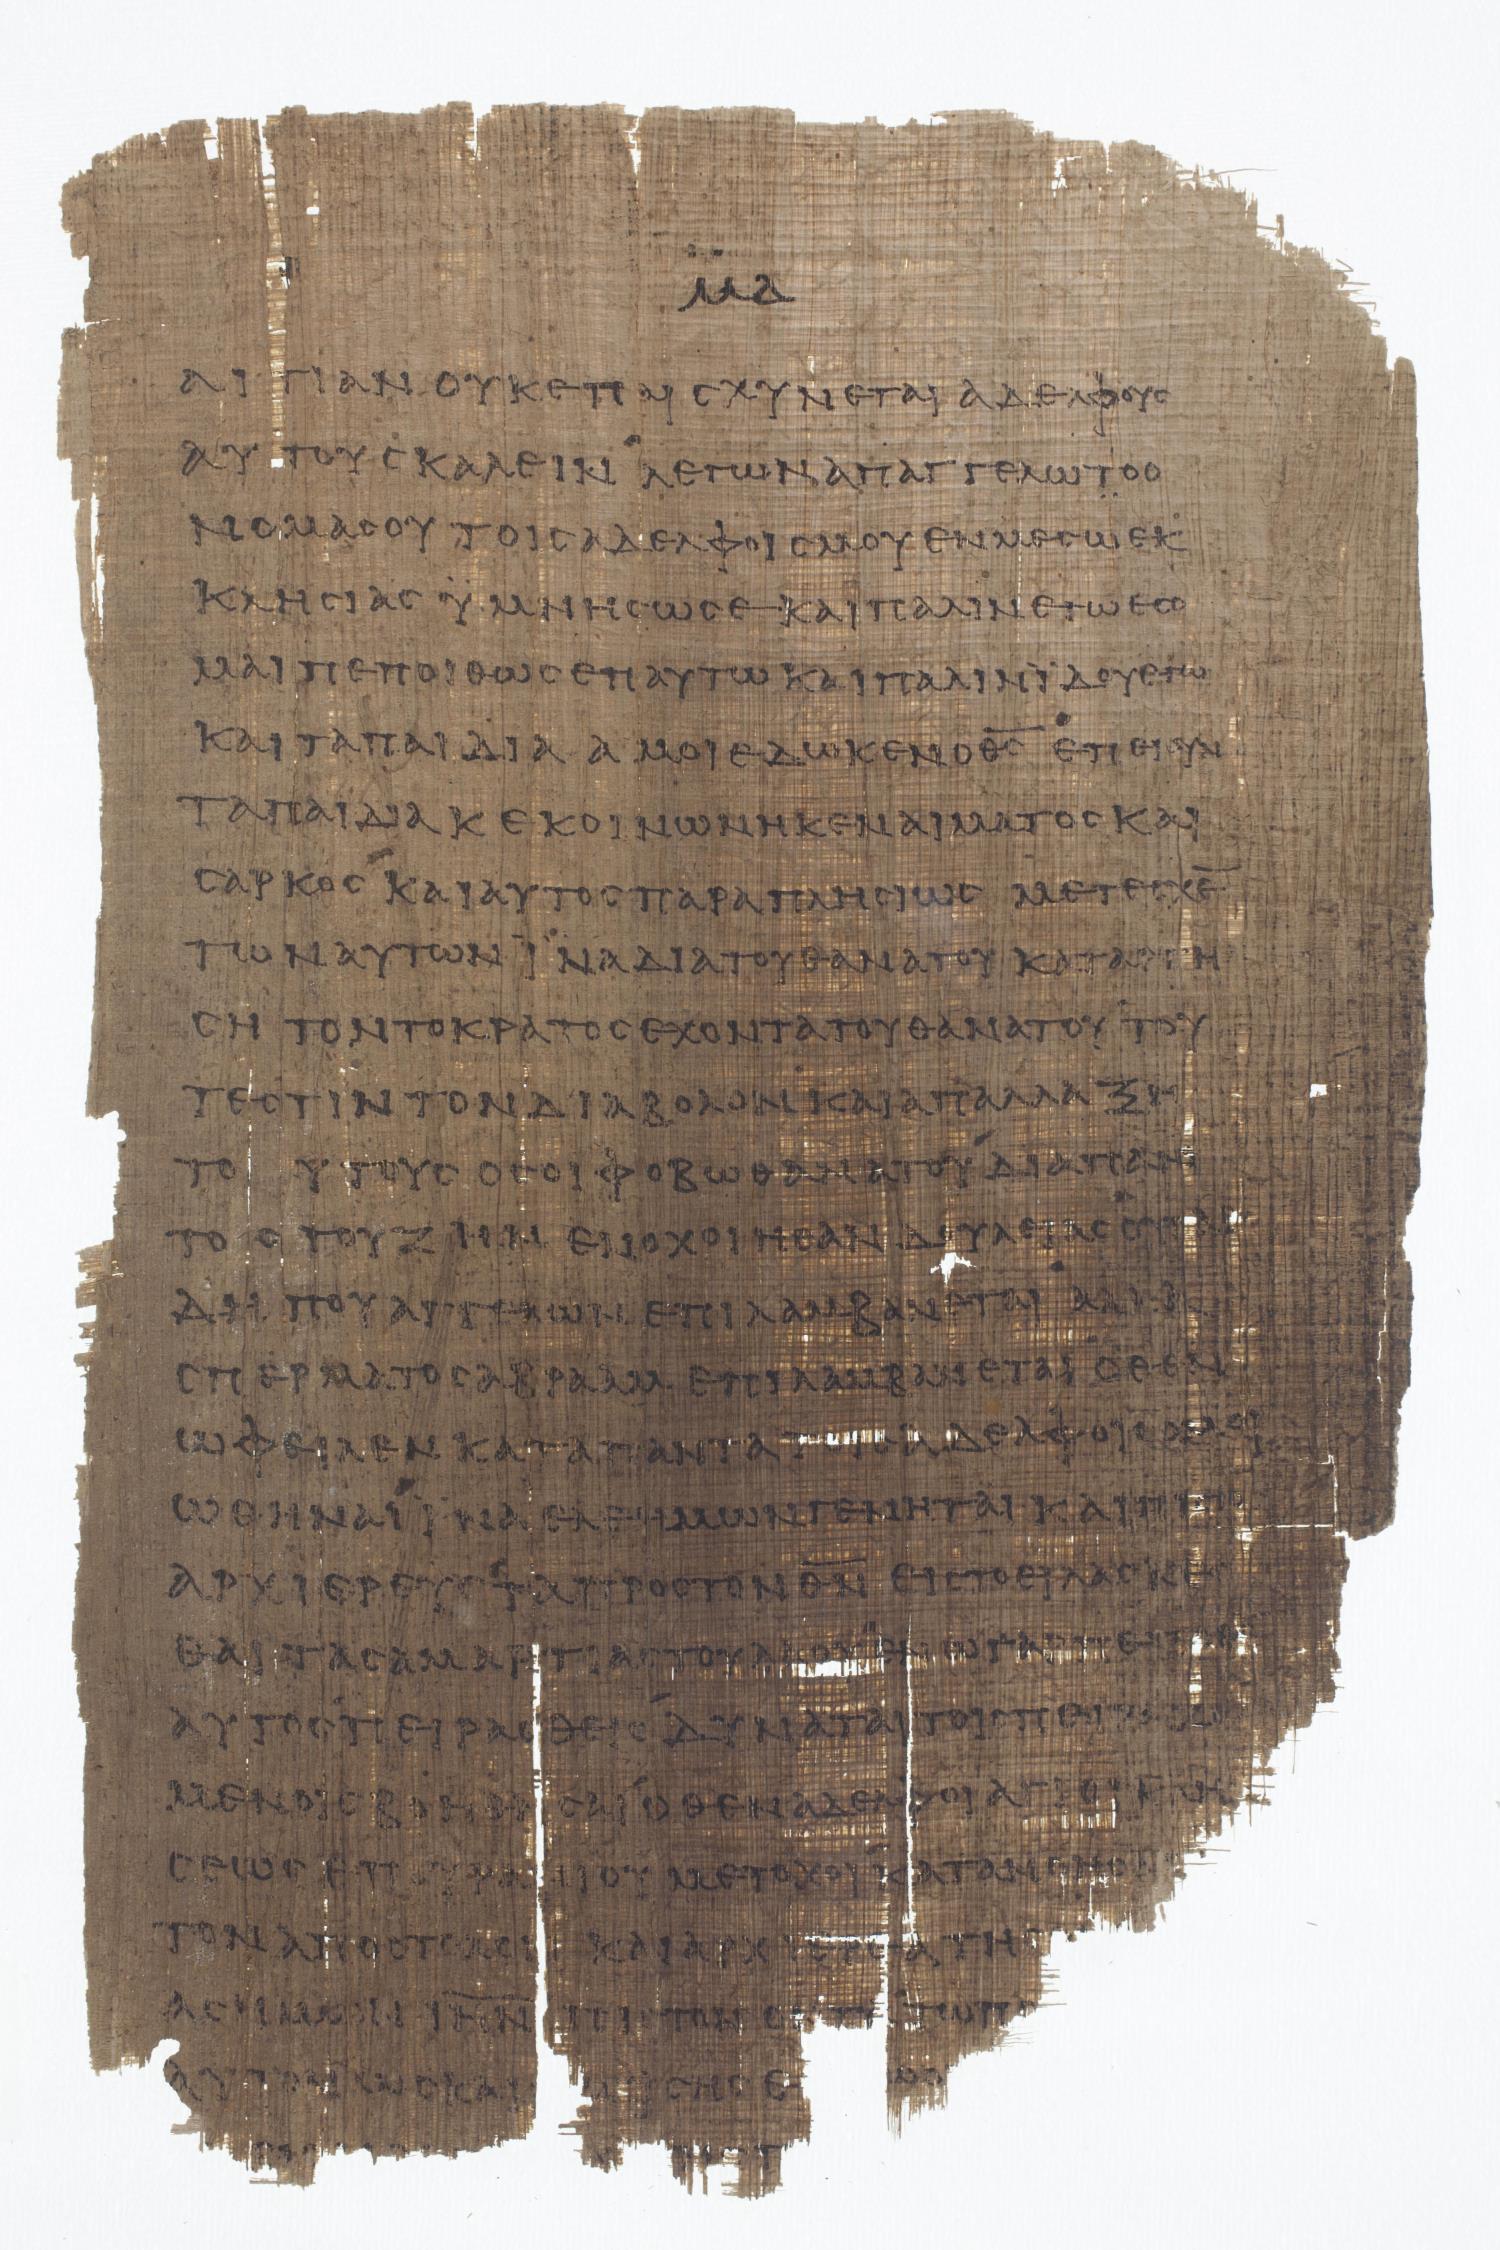 μα
αιτιαν ουκ επαισχυνεται αδελφους
αυτους καλειν λεγων απαγγελω το ο
νομα σου τοις αδελφοις μου εν μεσω εκ
κλησιας ϋμνησω σε και παλιν εγω εσο
μαι πεποιθως επ αυτω και παλιν ϊδου εγω
και τα παιδια α μοι εδωκεν ο θ̅ς̅ επει ουν
τα παιδια κεκοινωνηκεν αιματος και
σαρκος και αυτος παραπλησιως μετεσχε̅
των αυτων ϊνα δια του θανατου καταργη
ση τον το κρατος εχοντα του θανατου του
τ εστιν τον διαβολον και απαλλαξη
τουτους οσοι φοβω θανατου δια παν
τος του ζην ενοχοι ησαν δουλειας
δηπου αγγελων επιλαμβανεται αλλα
σπερματος αβρααμ επιλαμβανεται οθεν
ωφειλεν κατα παντα τοις αδελφοις ομοι
ωθηναι ϊνα ελεημων γενηται και
αρχιερευς τα προς τον θ̅ν̅ εις το ειλασκεσ
θαι τας αμαρτιας του λαου εν ω γαρ πεπονθε
αυτος πειρασθεις δυναται τοις πειραζο
μενοις βοηθησαι οθεν αδελφοι αγιοι
σεως επουρανιου μετοχοι κατανοησα
τον αποστολον και αρχιερεα της
ημων ι̅η̅ν̅ πιστον οντα τω π
αυτον ως και μωυσης ε